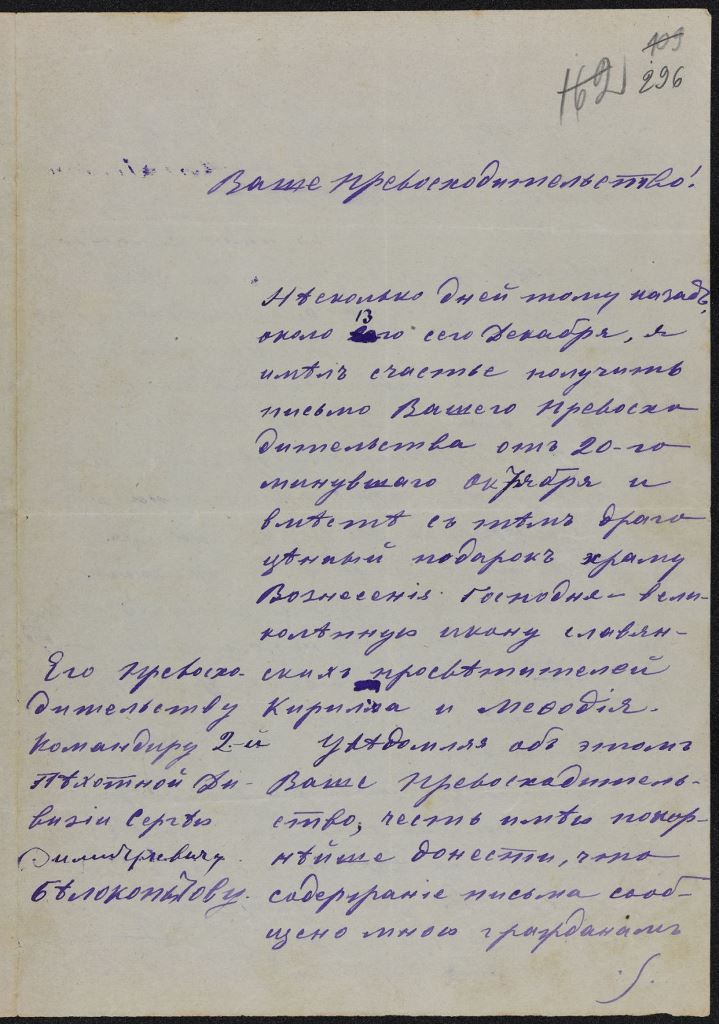 109
162 296
Ваше Превосходительство!
Нѣсколько дней тому назадъ,
около 13го сего Декабря, я
имѣлъ счастье получить
письмо Вашего Превосхо
дительства отъ 20-го
минувшаго октября и
вмѣстѣ съ тѣмъ драго
цѣнный подарокъ храму
Вознесенія Господня – вели-
колѣпную икону славян-
скихъ просвѣтителей
Кирилла и Меѳодія.
Увѣдомляя объ этомъ
Ваше Превосходитель-
ство, честь имѣю покор-
нѣйше донести, что
содержаніе письма сооб-
щено мною гражданамъ
Его Превосхо-
дительству
Командиру 2-й
Пѣхотной Ди-
визіи Сергѣю
Димитріевичу
Бѣлокопытову.